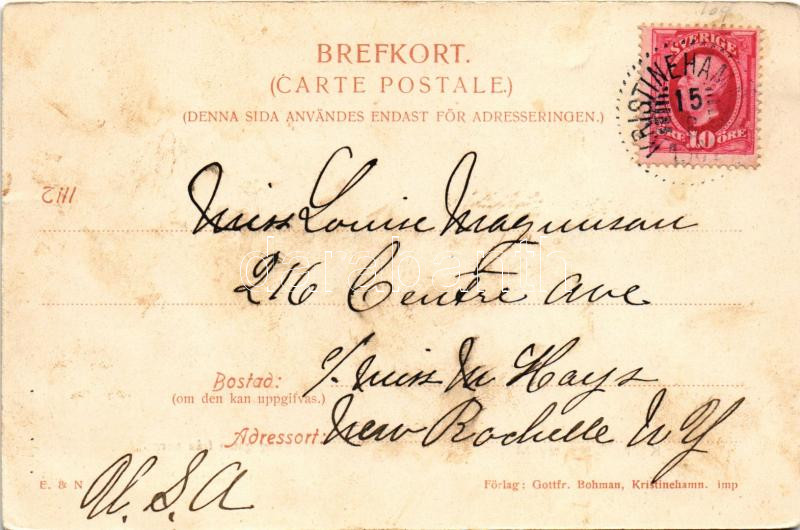 BREFKORT.
(CARTE POSTALE.)
(DENNA SIDA ANVÄNDES ENDAST FÖR ADRESSERINGEN.)
SVERIGE
KRISTINEHAM
15
10 ÖRE
Till
Miss Louise Magnuson
216 Centre Ave
Bostad: % Miss M Hays
(om den kan uppgifvas.)
Adressort: New Rochelle N Y
U. S. A
E. & N
Förlag: Gottfr. Bohman, Kristinehamn. imp
darabanth